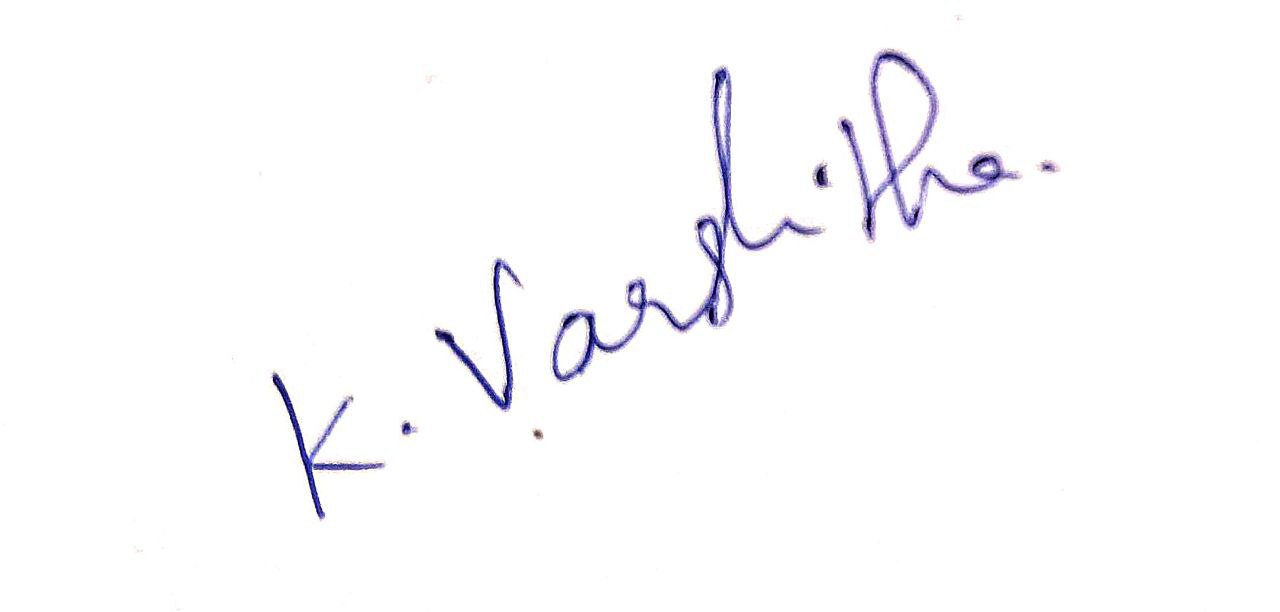 K. Varshitha.